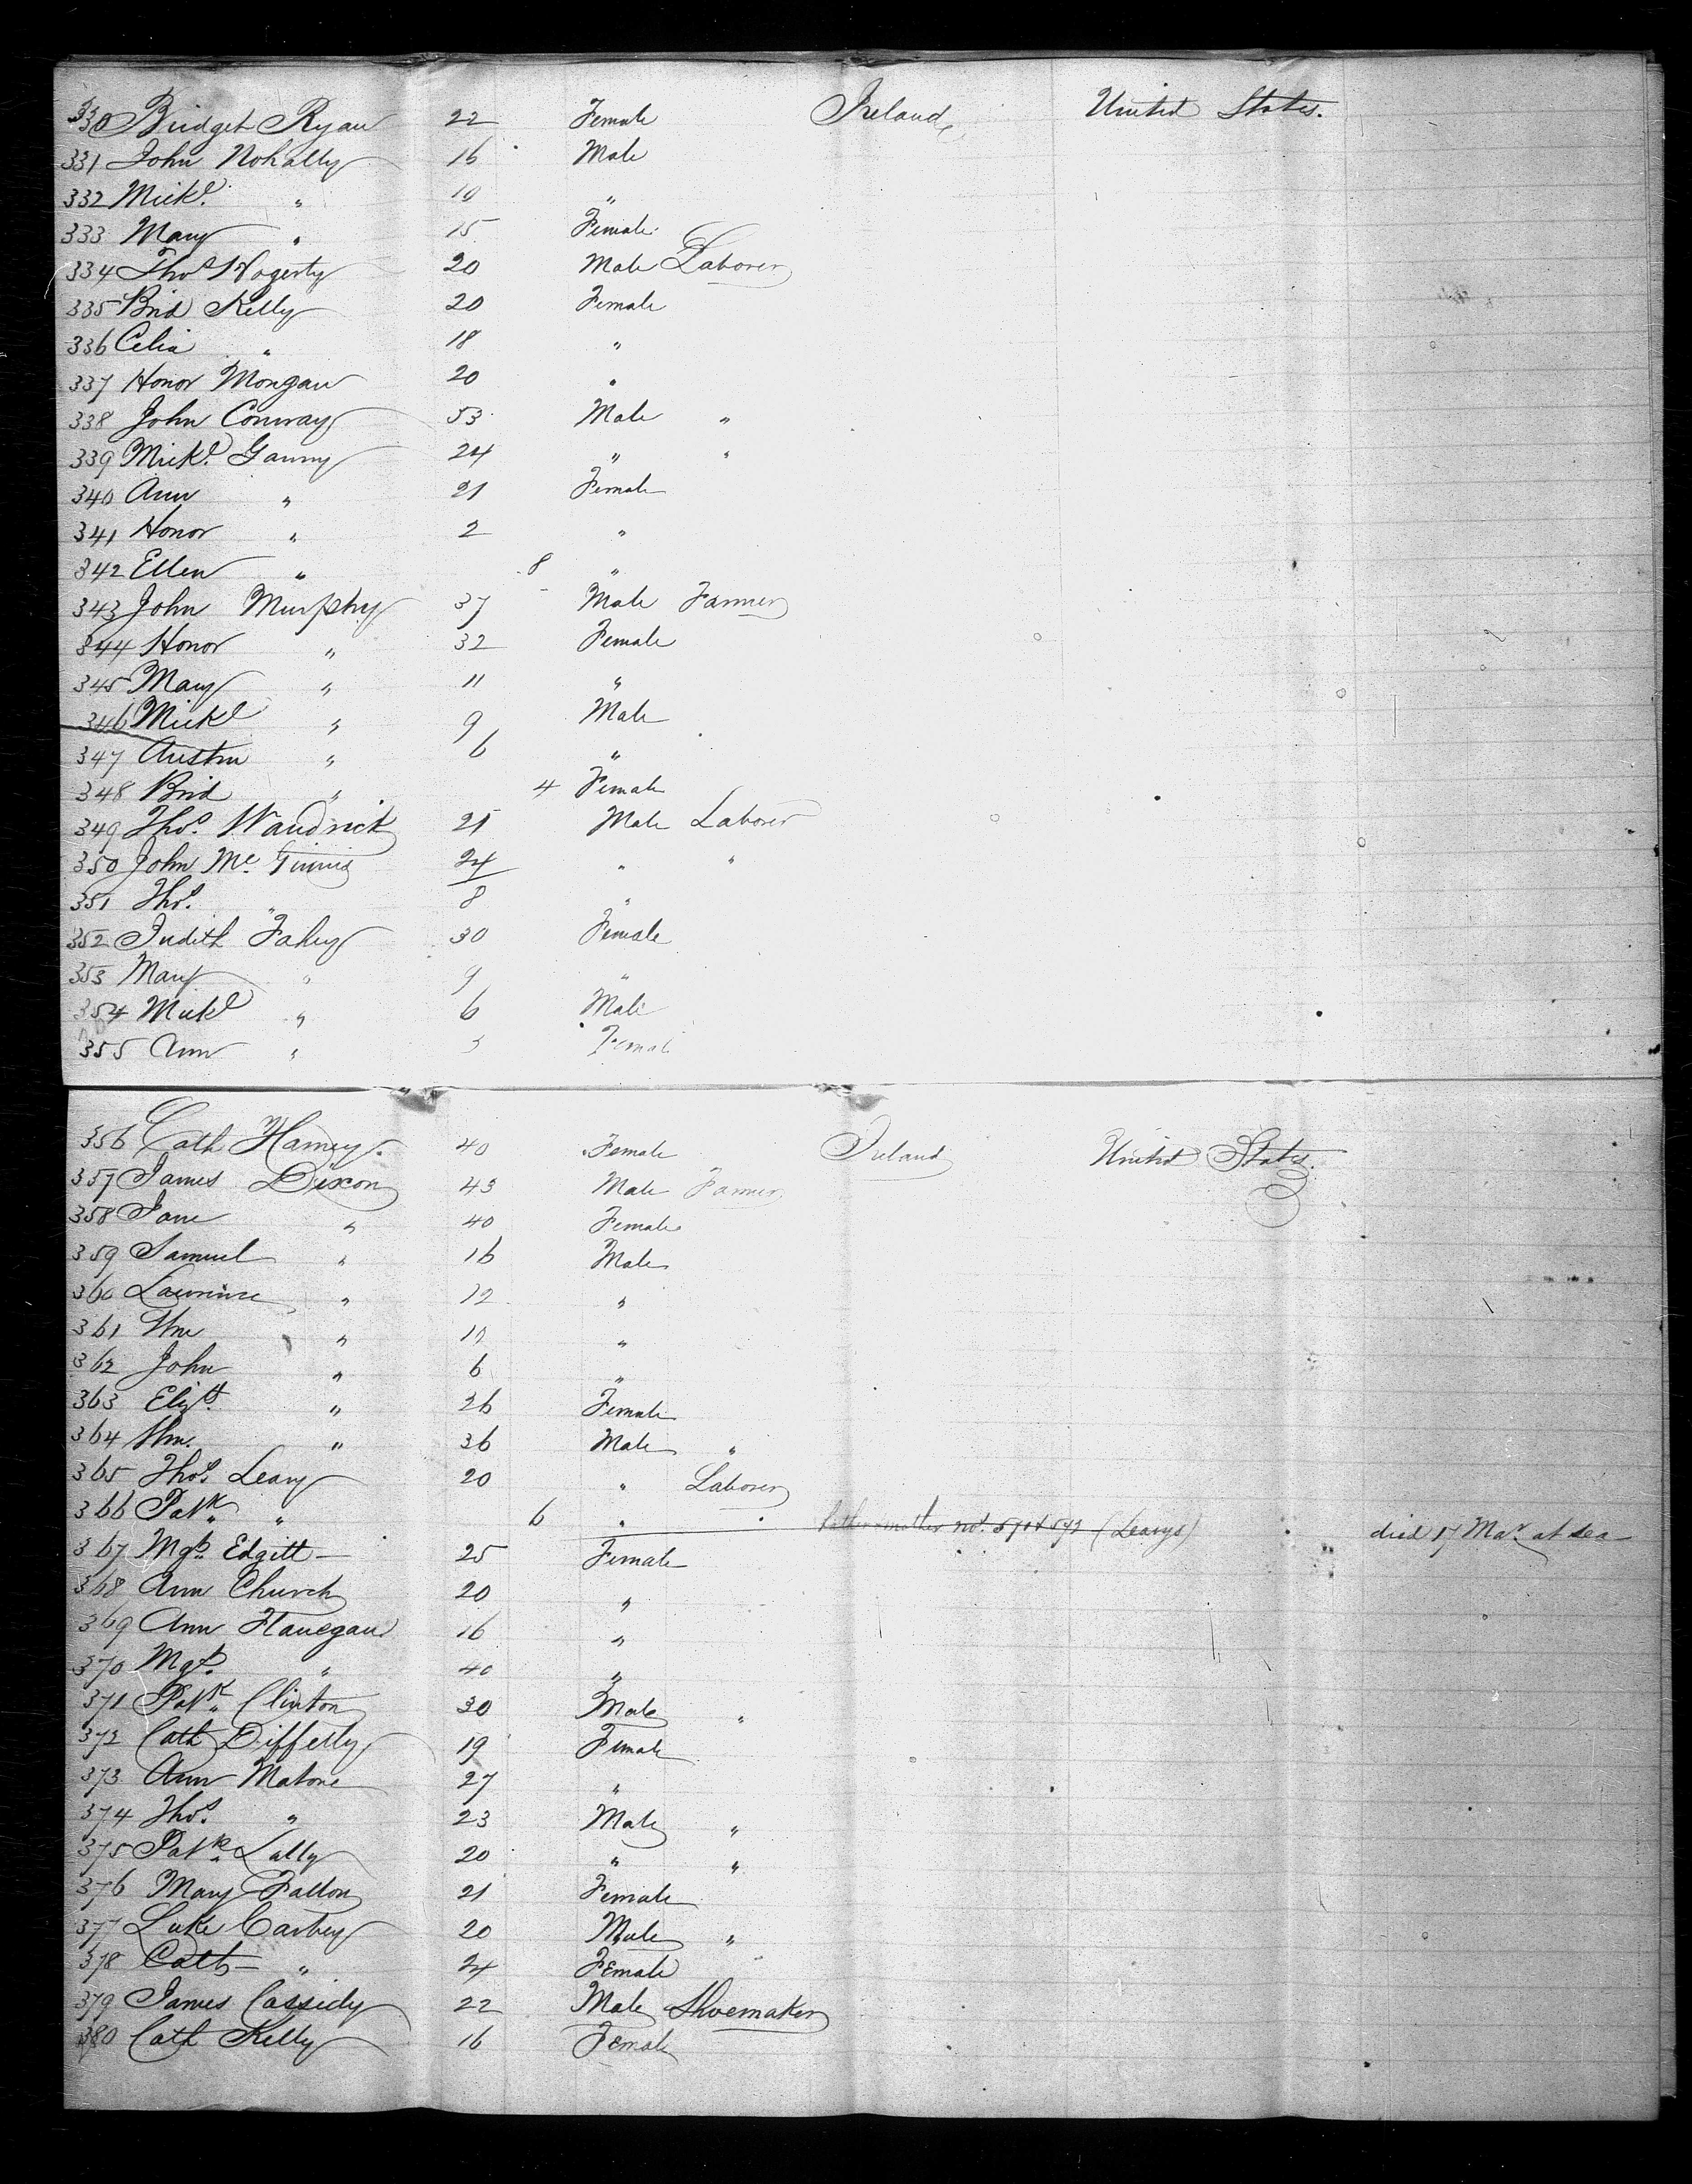 330 Bridget Ryan 22 Female Ireland United States.
331 John Nohally 16 Male
332 Mickl. " 19 "
333 Mary " 15 Female
334 Thos Hogerty 20 Male Laborer
335 Brid Kelly 20 Female
336 Celia " 18 "
337 Honor Mongan 20 "
338 John Conway 53 Male "
339 Mickl. Ganny 24 " "
340 Ann " 21 Female
341 Honor " 2 "
342 Ellen " 8 "
343 John Murphy 37 Male Farmer
344 Honor " 32 Female
345 Mary " 11 "
346 Mickl " 9 Male
347 Austin " 6 "
348 Brid " 4 Female
349 Thos. Wandrick 21 Male Laborer
350 John Mc Ginnis 24 " "
351 Thos. " 8 "
352 Judith Fahy 30 Female
353 Mary " 9 "
354 Mickl " 6 Male
355 Ann " 3 Female
356 Cath Harney. 40 Female Ireland United States.
357 James Dixon 43 Male Farmer
358 Jane " 40 Female
359 Samuel " 16 Male
360 Lawrence " 12 "
361 Wm " "
362 John " 6 "
363 Elizth. " 26 Female
364 Wm. " 36 Male "
365 Thos. Leary 20 " Laborer
366 Patk. " 6 " father & mother no. 571 & 572 (Learys) died 17 Mar at sea
367 Mgt. Edgitt 25 Female
368 Ann Church 20 "
369 Ann Flanegan 16 "
370 Mgt. " 40 "
371 Patk. Clinton 30 Male "
372 Cath Diffelly 19 Female
373 Ann Malone 27 "
374 Thos. " 23 Male "
375 Patk. Lally 20 " "
376 Mary Fallon 21 Female
377 Luke Carbey 20 Male "
378 Cath " 24 Female
379 James Cassidy 22 Male Shoemaker
380 Cath Kelly 16 Female